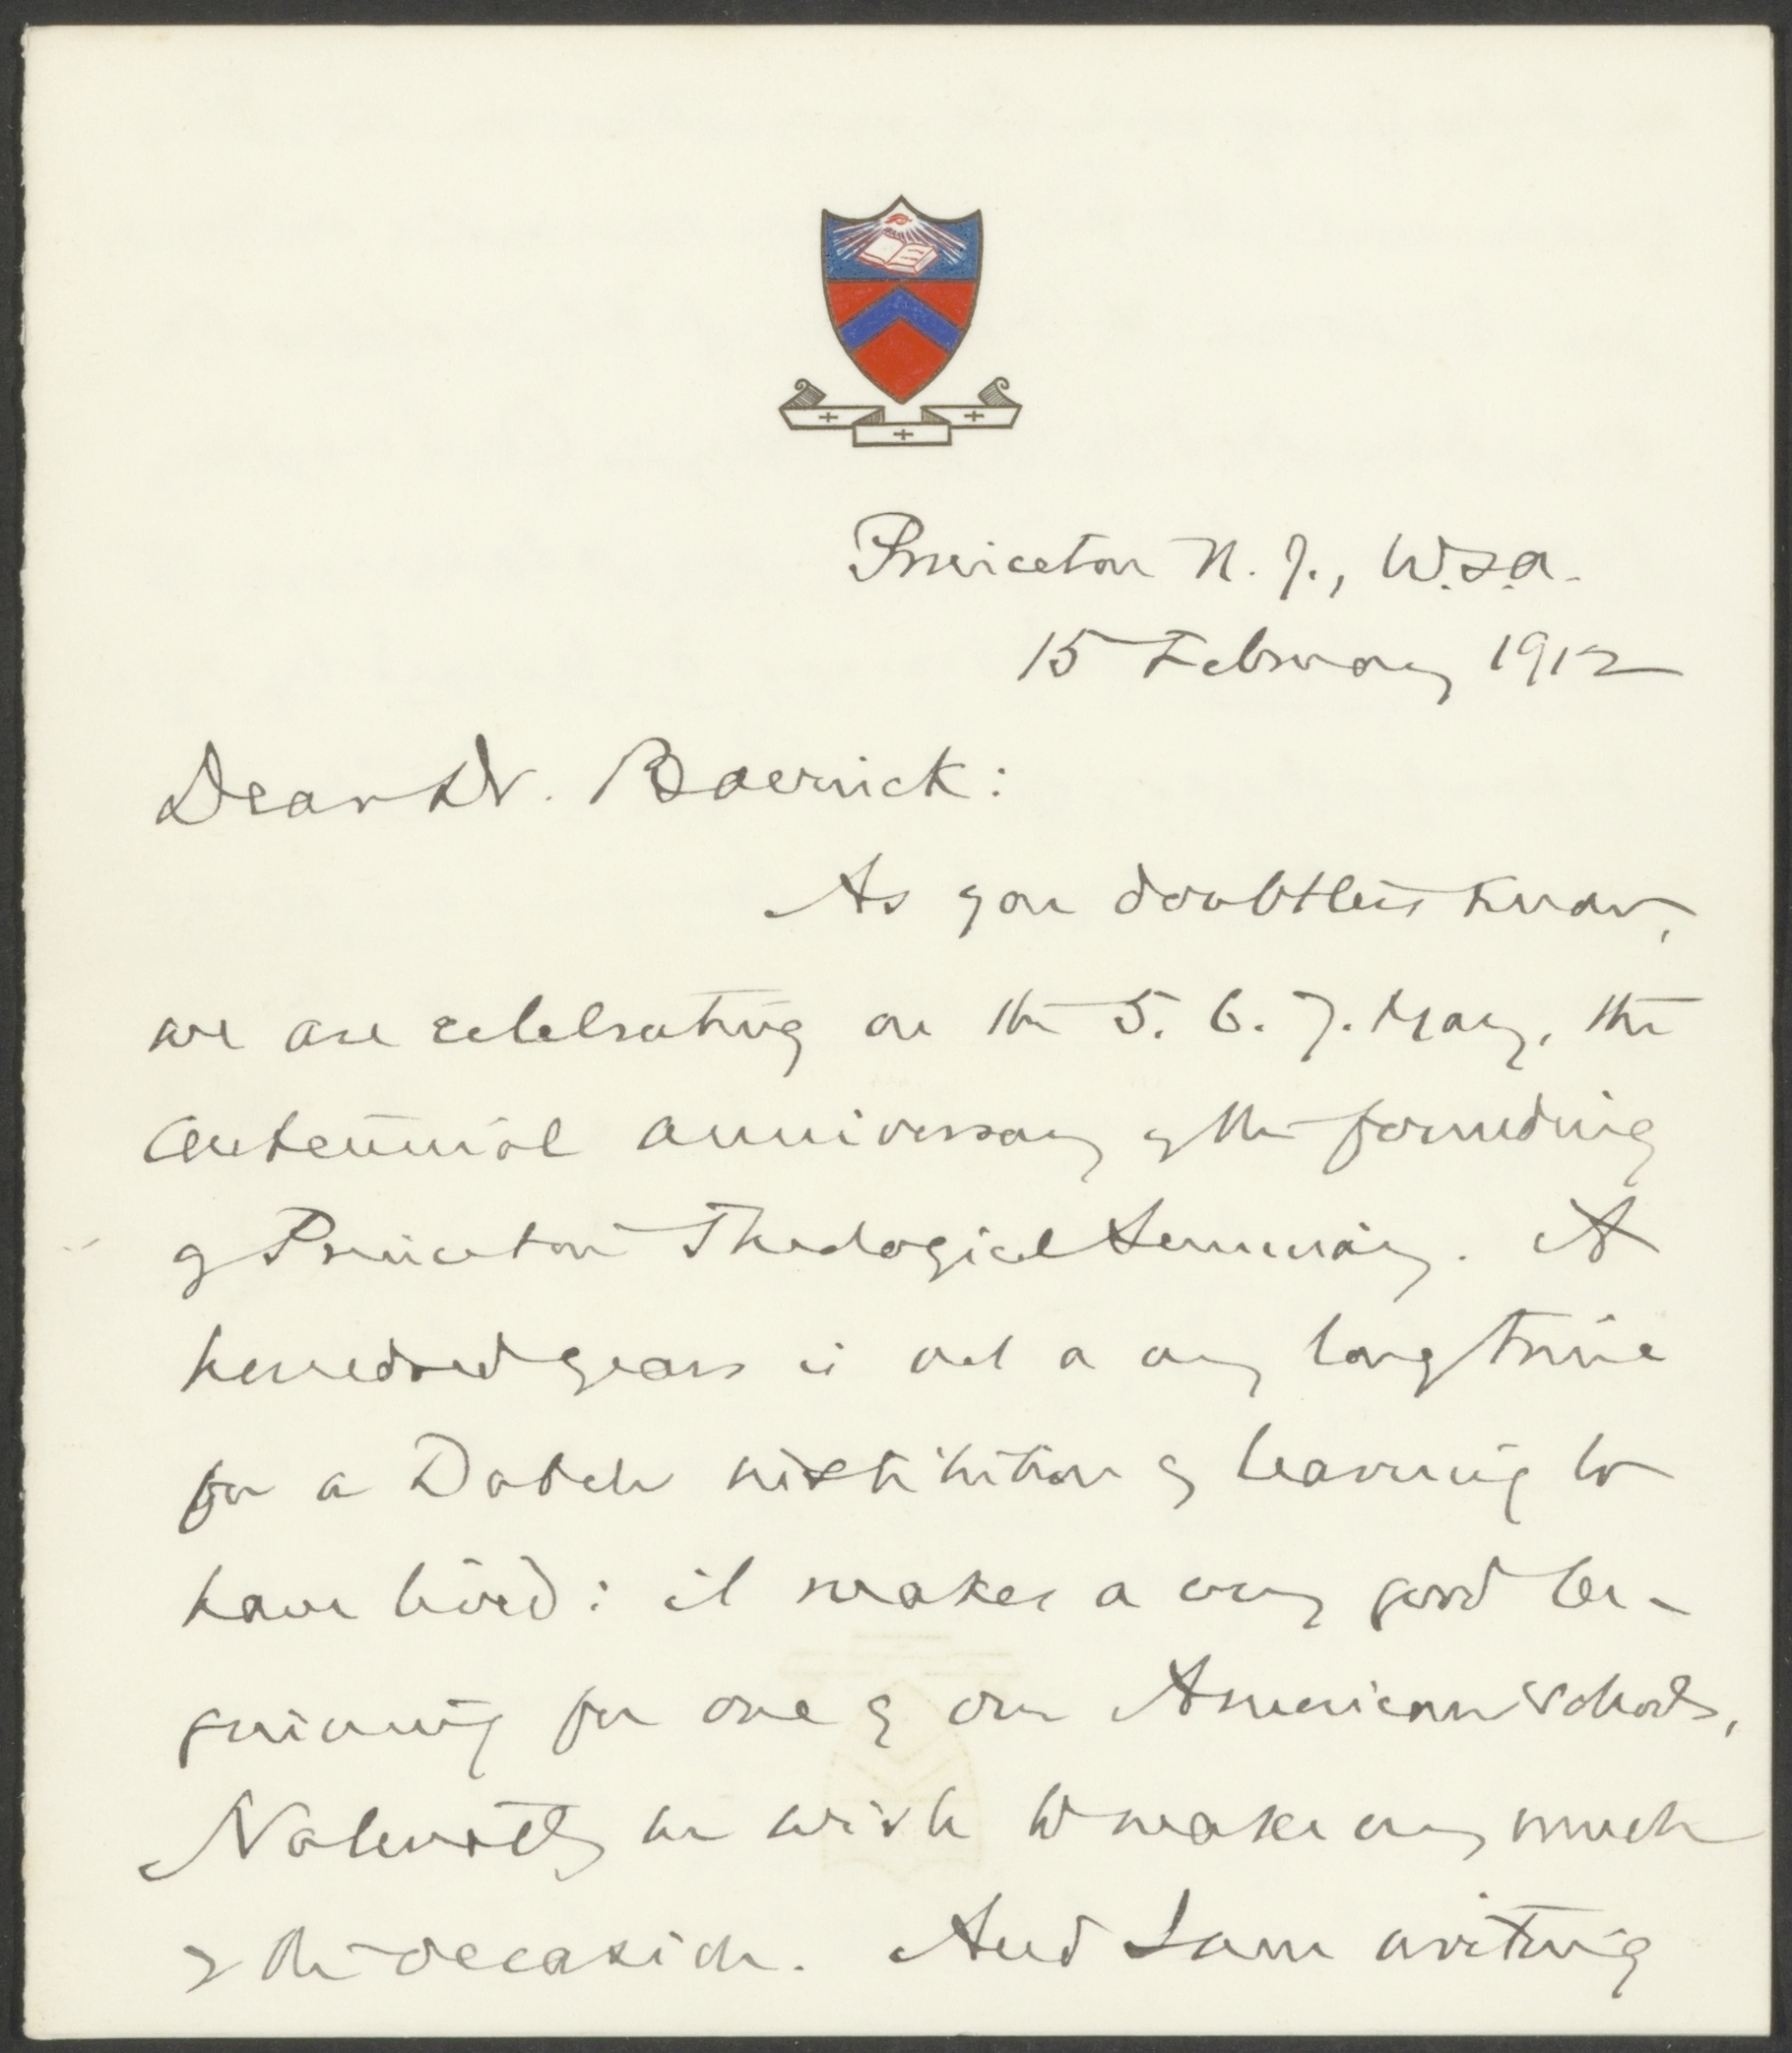 Princeton N. J., U.S.A.
15 February 1912
Dear Dr. Bavinck:
As you doubtless know,
we are celebrating on the 5. 6. 7. May, the
centennial anniversary of the founding
of Princeton Theological Seminary. A
hundred years is not a very long time
for a Dutch institution of learning to
have lived: it makes a very good be-
ginning for one of our American schools,
Naturally we wish to make very much
of the occasion. And I am writing